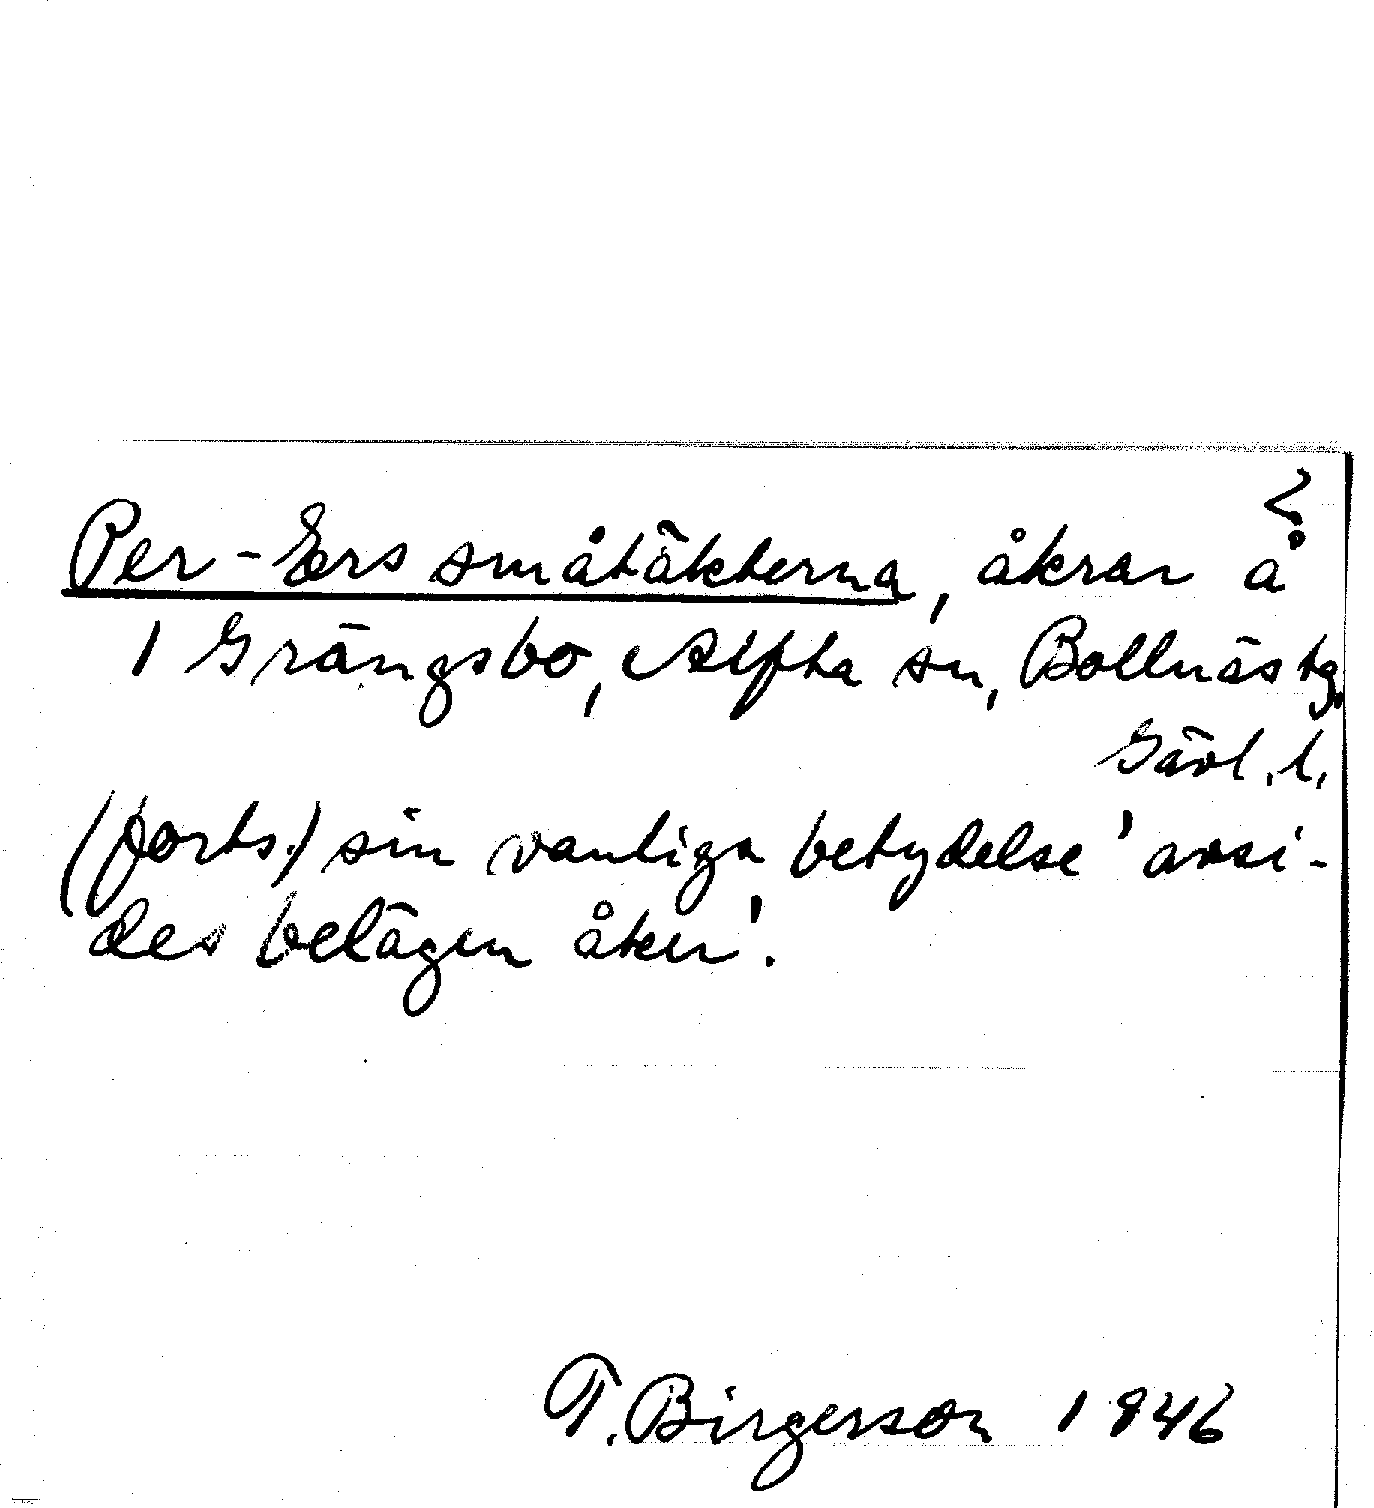 2
Per-Ers småtäkterna, åkrar å
1 Grängsbo, Alfta sn, Bollnäs tg.
Gävl. l.
(forts.) sin vanliga betydelse 'avsi-
des belägen åker'.
T. Birgerson 1946